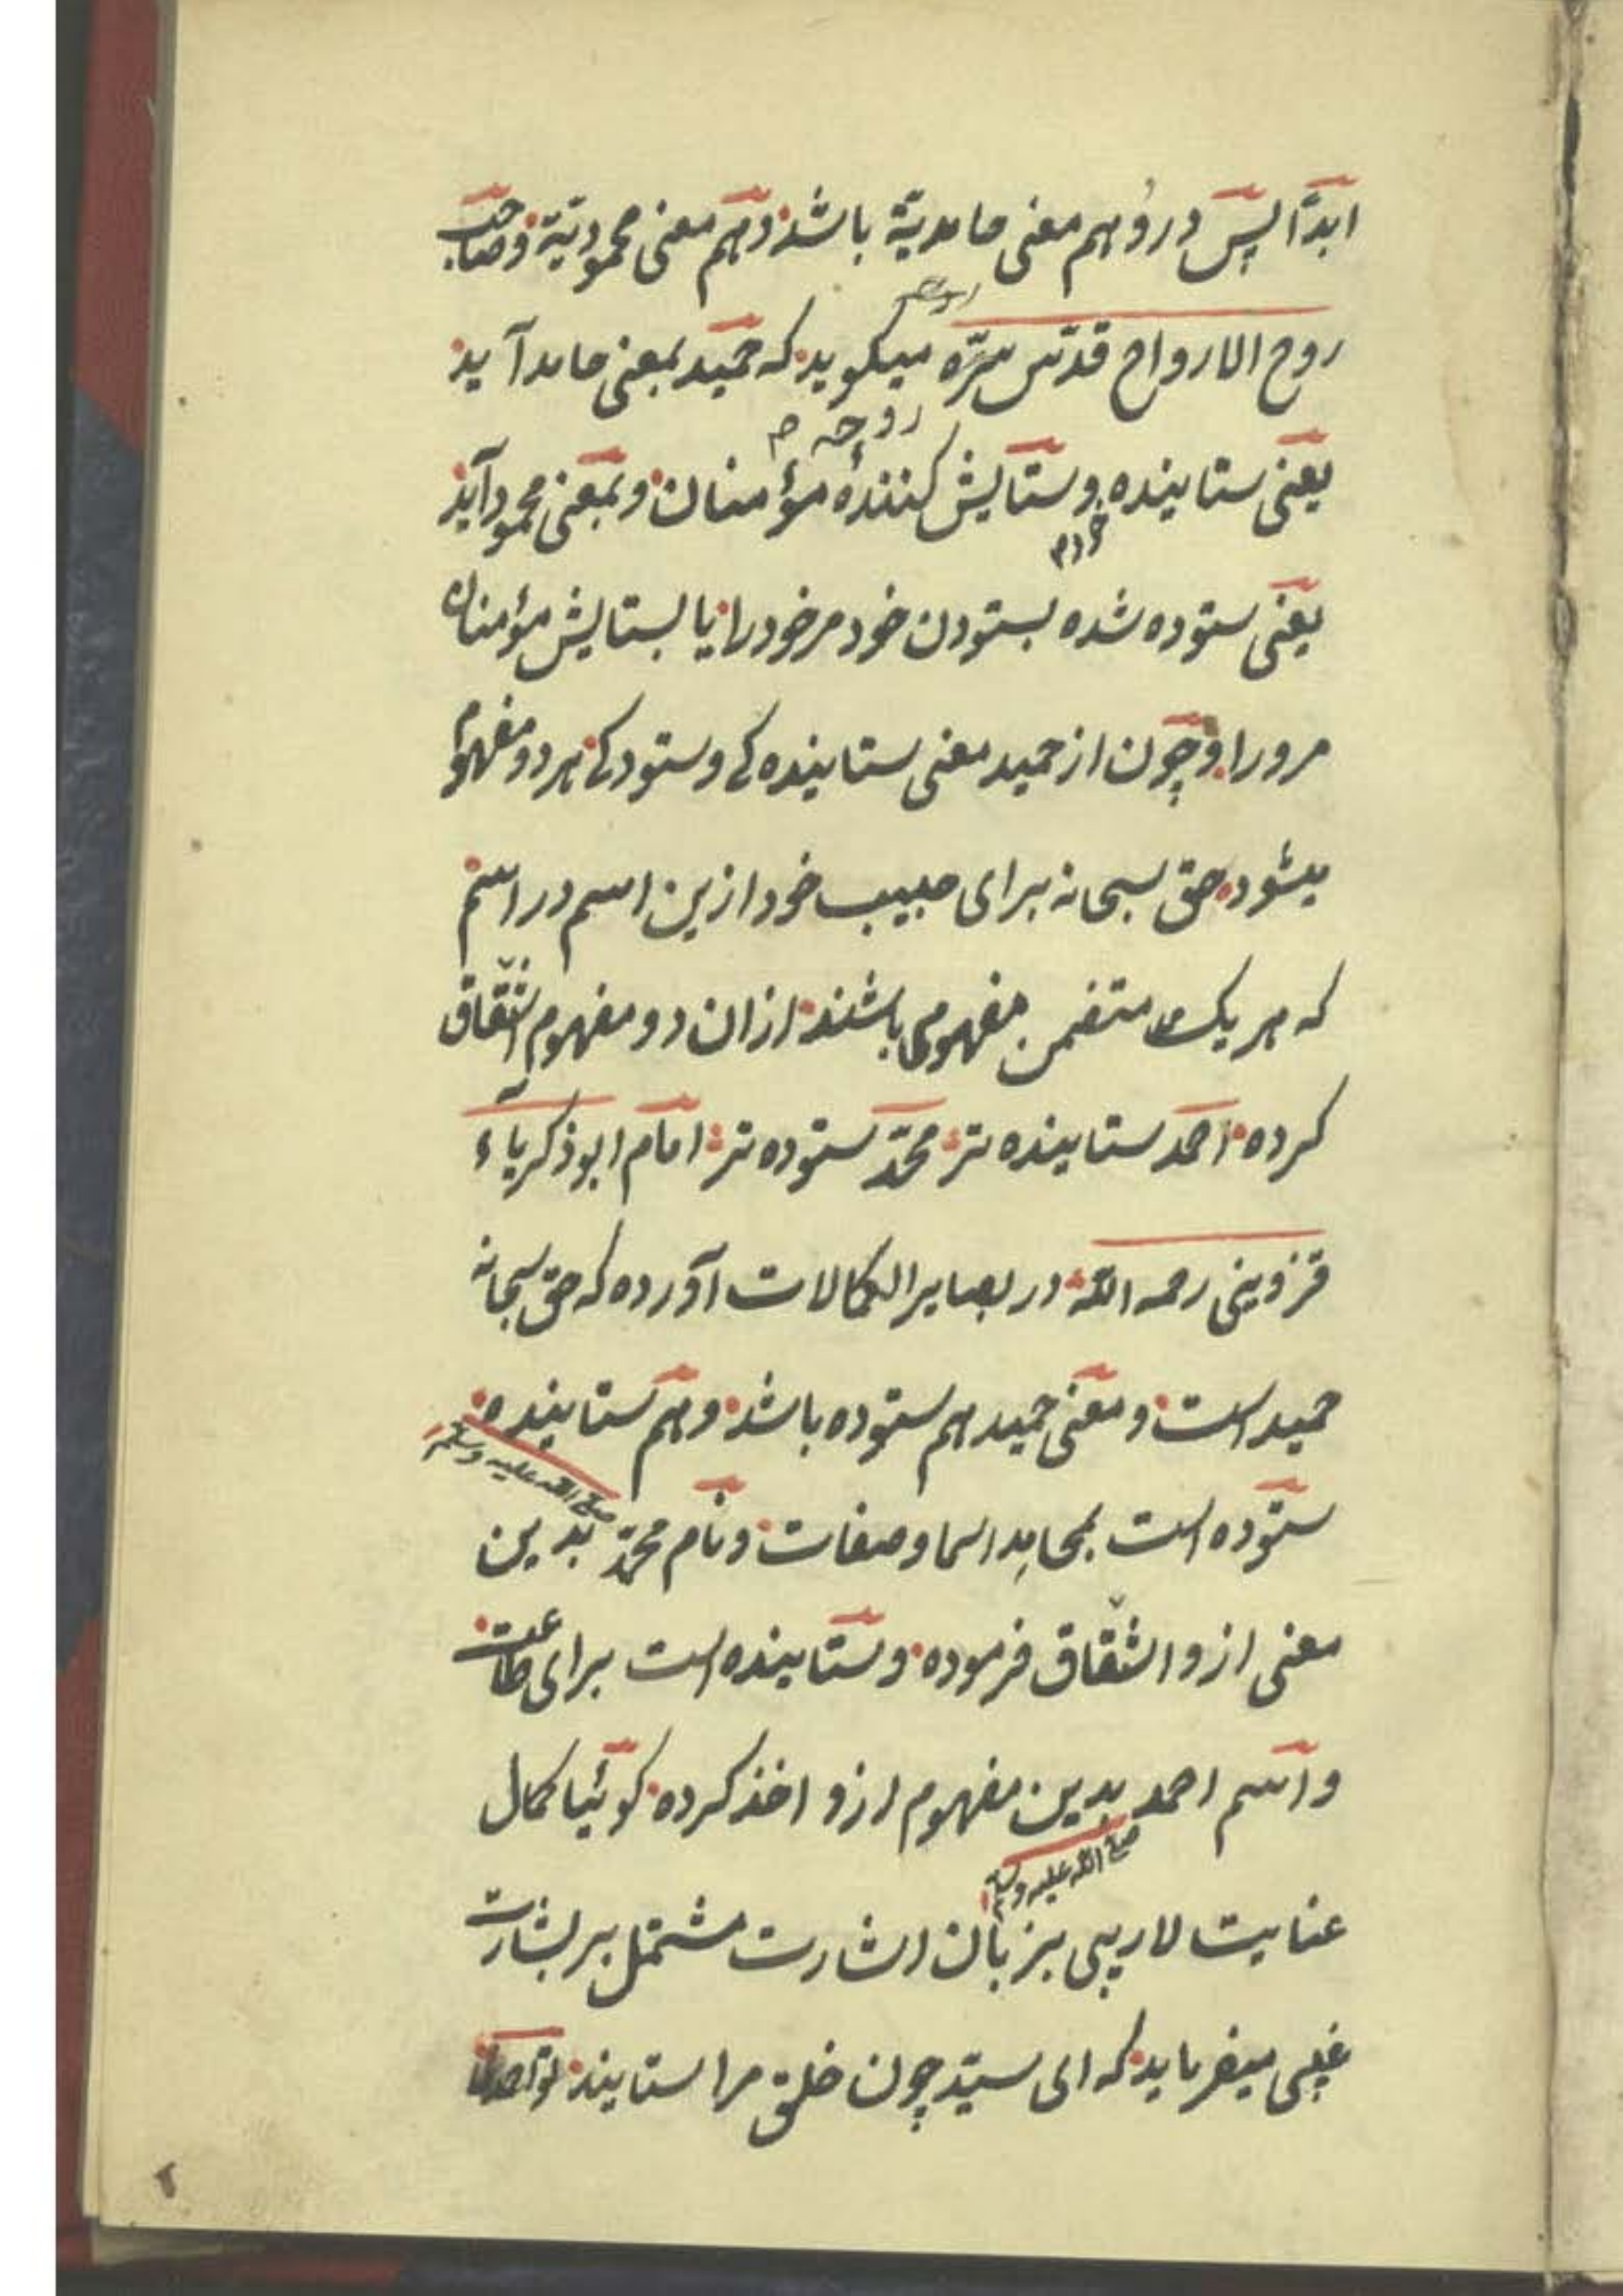 ابدًا پس درو هم معنی حامدیّة باشد و هم معنی محمودیّة و صاحب
روح الارواح قدّس سرّه میکوید که حمید بمعنی حامد آید
روحه م
یعنی ستاینده و ستایش کنندهٔ مؤمنان و بمعنی محمود آید
یعنی ستوده شده بستودن خود مر خود را یا بستایش مؤمنان
مرورا و چون از حمید معنی ستاینده کی و ستودکی هر دو مفهوم
میشود حق سبحانه برای حبیب خود ازین اسم دو اسم
که هر یک متضمن مفهومی باشند ازان دو مفهوم اشتقاق
کرده احمد ستاینده تر محمّد ستوده تر امام ابو ذکریاء
قزوینی رحمه الله در بصایر الکمالات آورده که حق سبحانه
حمید است و معنی حمید هم ستوده باشد و هم ستاینده
صلی الله علیه وسلم
ستوده است بمحامد اسما و صفات و نام محمّد بدین
معنی ازو اشتقاق فرموده و ستاینده است برای طاعت
و اسم احمد بدین مفهوم ازو اخذ کرده کوئیا کمال
صلی الله علیه وسلم
عنایت لاریبی بزبان اشارت مشتمل بر بشارت
غیبی میفرماید که ای سیّد چون خلق مرا ستایند تو